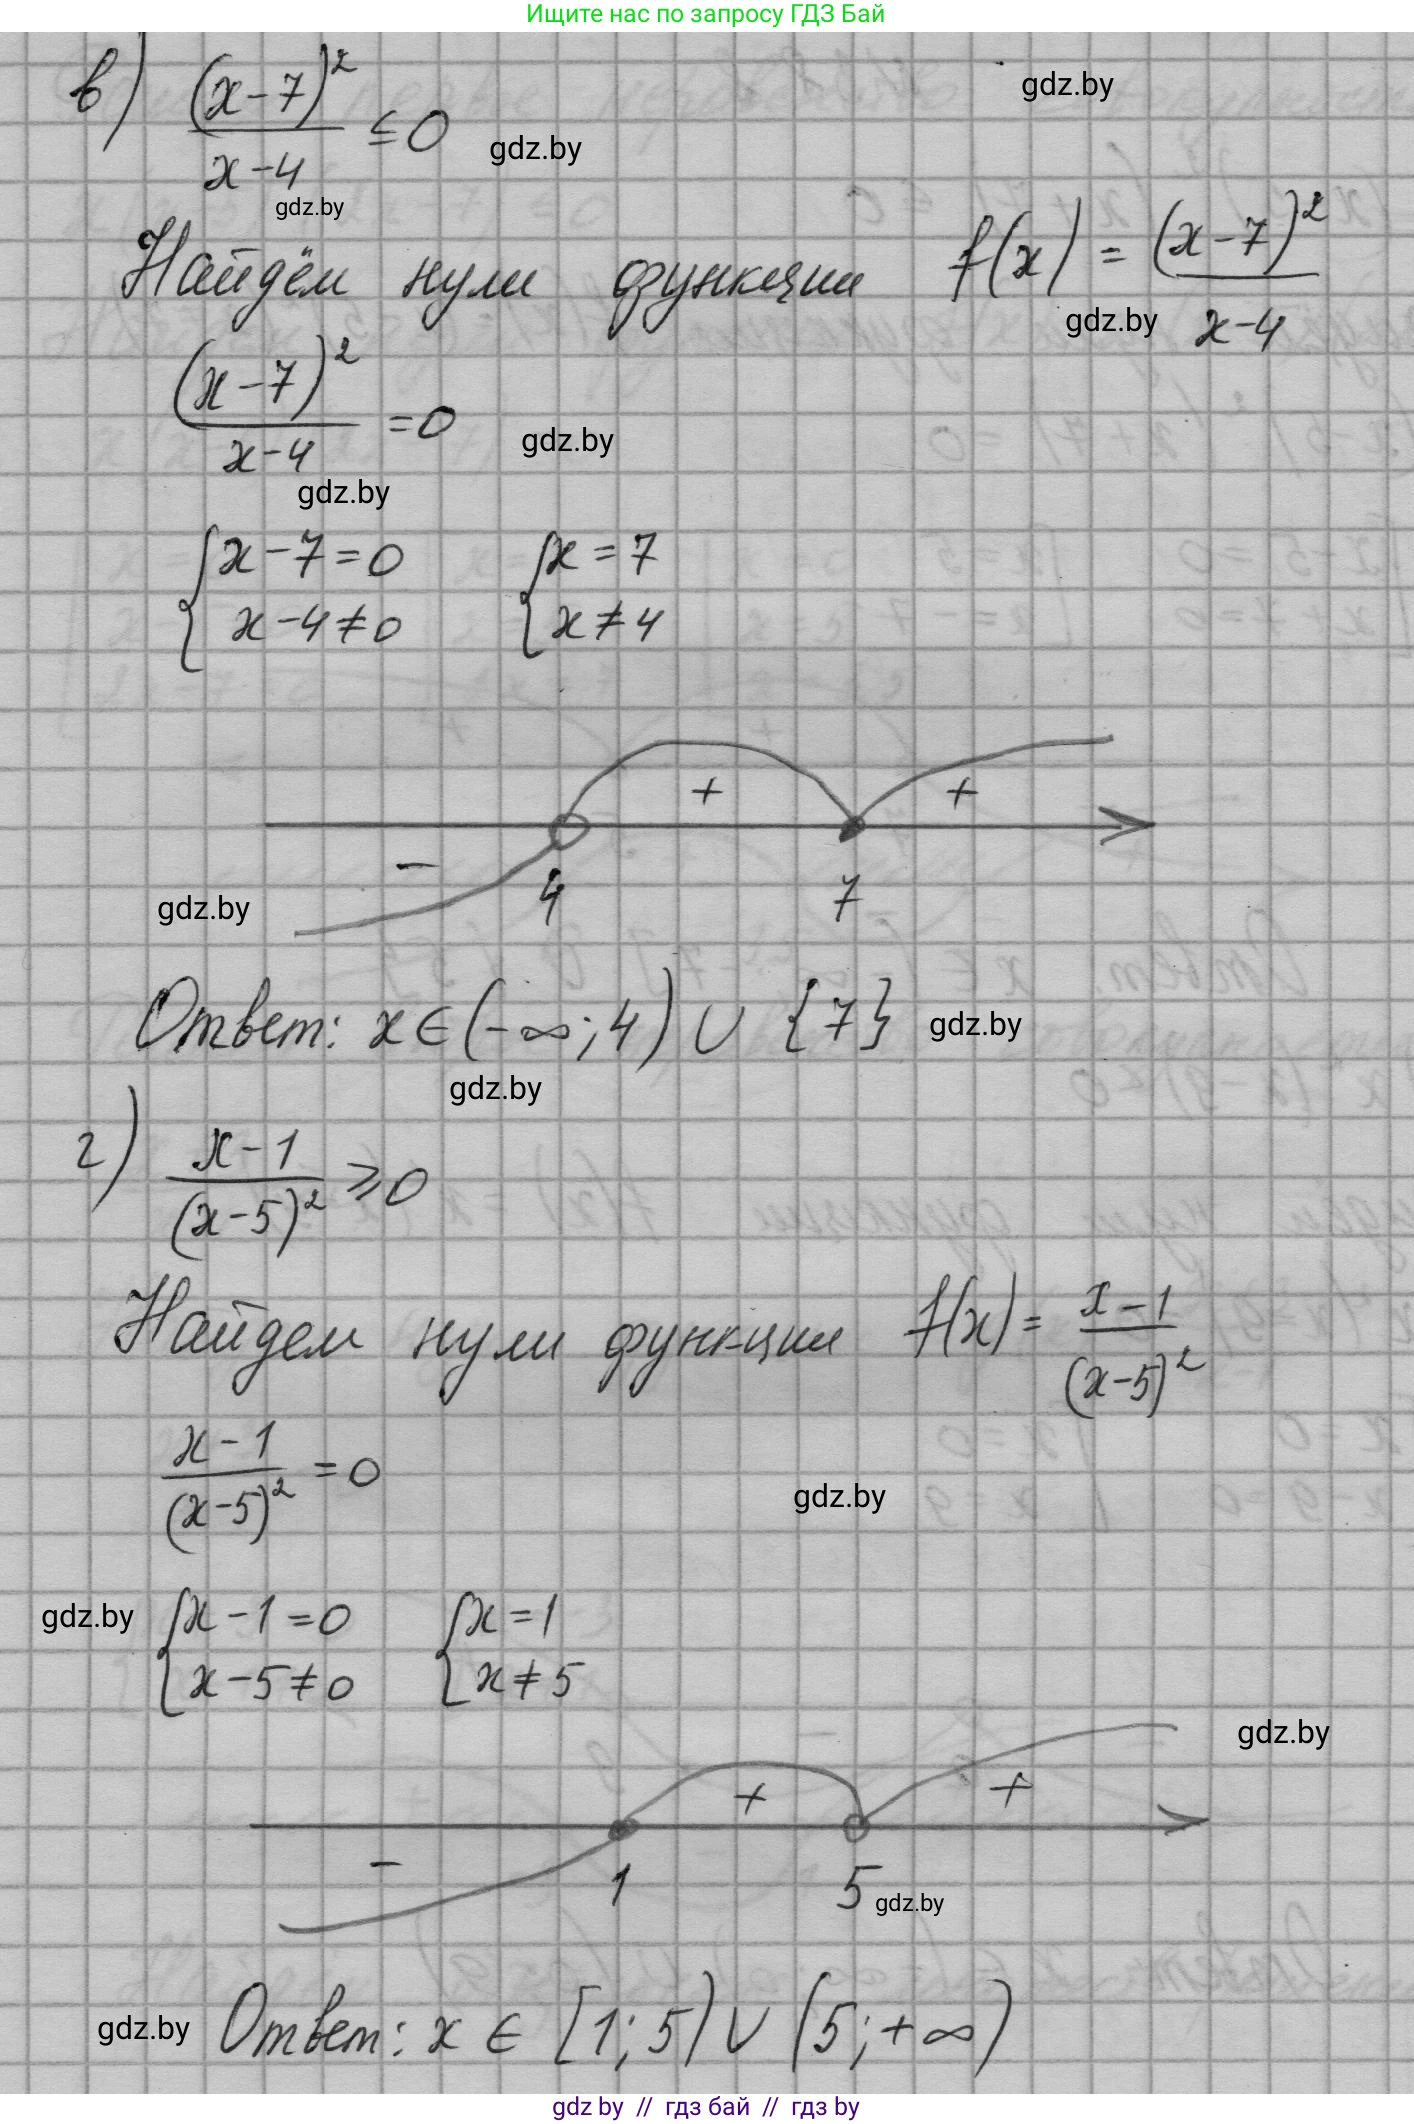 Ищите нас по запросу ГДЗ Бай
в) (x-7)² / (x-4) ≤ 0
gdz.by
gdz.by
gdz.by
Найдём нули функции f(x) = (x-7)² / (x-4)
gdz.by
(x-7)² / (x-4) = 0
gdz.by
gdz.by
{ x-7=0 { x=7
x-4≠0 x≠4
+ +
-
4 7
gdz.by
Ответ: x∈(-∞;4) ∪ {7}
gdz.by
gdz.by
г) (x-1) / (x-5)² ⩾ 0
Найдем нули функции f(x) = (x-1) / (x-5)²
(x-1) / (x-5)² = 0
gdz.by
gdz.by
{ x-1=0 { x=1
x-5≠0 x≠5
gdz.by
+ +
-
1 5
gdz.by
gdz.by
Ответ: x ∈ [1;5) ∪ (5;+∞)
gdz.by // гдз бай // гдз by